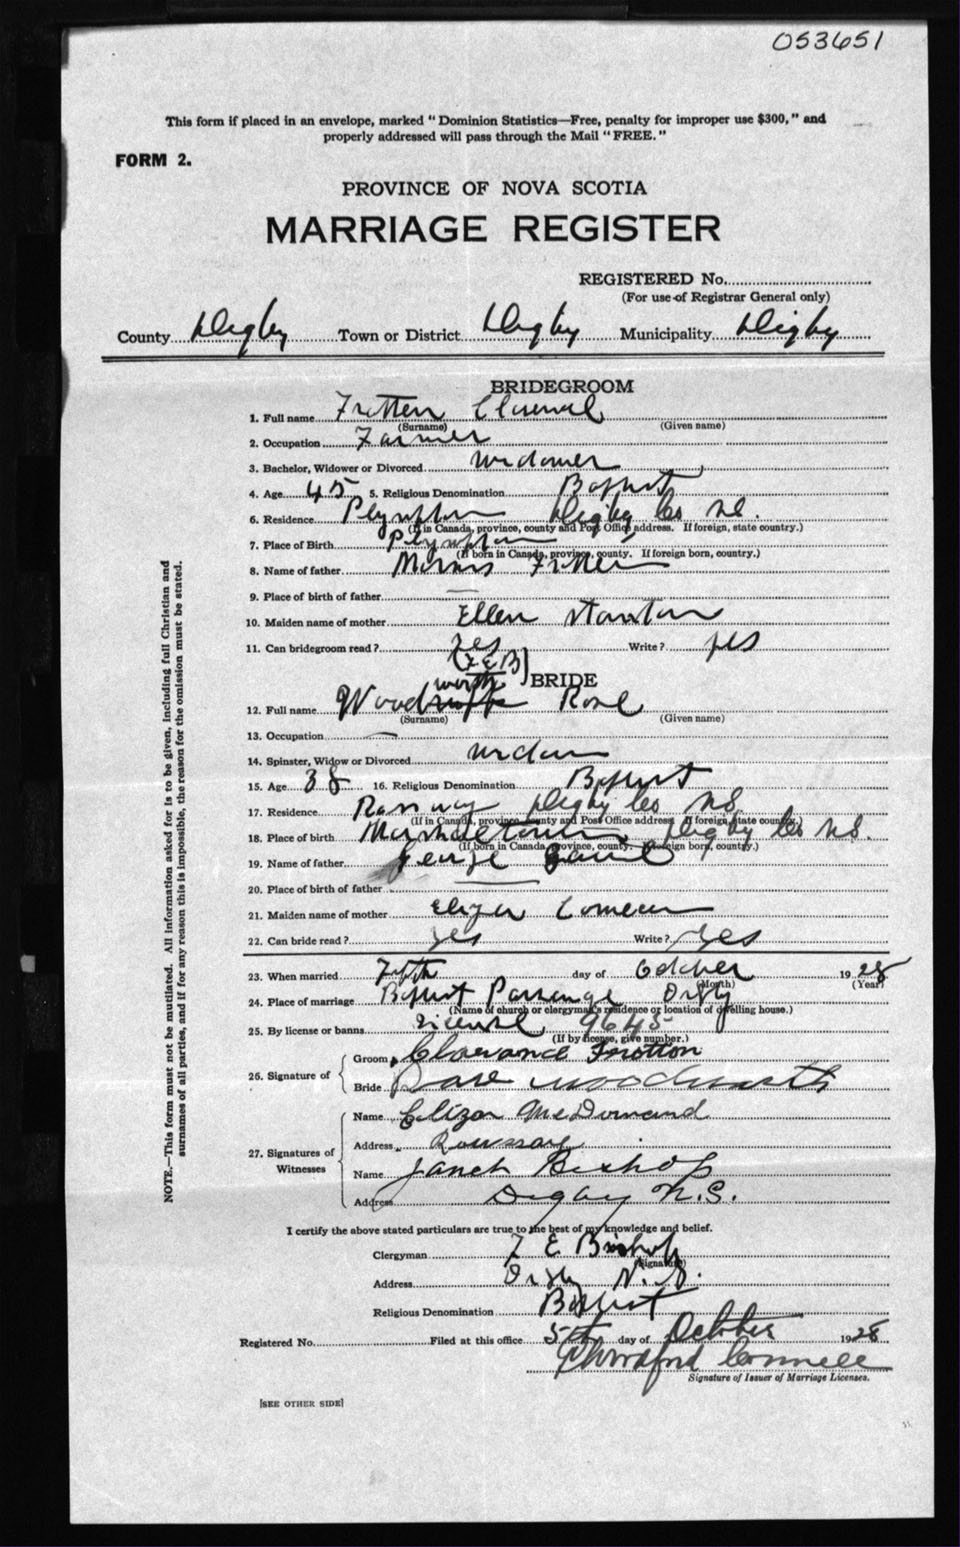 053651
This form if placed in an envelope, marked "Dominion Statistics—Free, penalty for improper use $300," and
properly addressed will pass through the Mail "FREE."
FORM 2.
PROVINCE OF NOVA SCOTIA
MARRIAGE REGISTER
REGISTERED No.
(For use of Registrar General only)
County Digby Town or District Digby Municipality Digby
BRIDEGROOM
1. Full name Trotten
(Surname) (Given name)
2. Occupation Farmer
3. Bachelor, Widower or Divorced Widower
4. Age 45 5. Religious Denomination Baptist
6. Residence Plympton Digby Co NS.
(If in Canada, province, county and Post Office address. If foreign, state country.)
7. Place of Birth Plympton
(If born in Canada, province, county. If foreign born, country.)
8. Name of father Morris Trotten
9. Place of birth of father —
10. Maiden name of mother Ellen Stanton
11. Can bridegroom read? yes Write? yes
(FEB)
BRIDE
worth
12. Full name Wood Rose
(Surname) (Given name)
13. Occupation —
14. Spinster, Widow or Divorced Widow
15. Age 38 16. Religious Denomination Baptist
17. Residence Digby Co NS
(If in Canada, province, county and Post Office address. If foreign, state country.)
18. Place of birth Marshalltown Digby Co NS.
(If born in Canada, province, county. If foreign born, country.)
19. Name of father George
20. Place of birth of father —
21. Maiden name of mother Eliza Comeau
22. Can bride read? yes Write? yes
23. When married Fifth day of October 1928
(Month) (Year)
24. Place of marriage Baptist Parsonage Digby
(Name of church or clergyman's residence or location of dwelling house.)
25. By license or banns License 9645
(If by license, give number.)
26. Signature of
Groom Clarance Trotton
Bride Rose Woodworth
27. Signatures of Witnesses
Name Eliza McDormand
Address
Name Janet Bishop
Address Digby N.S.
I certify the above stated particulars are true to the best of my knowledge and belief.
Clergyman F E Bishop
(Signature)
Address Digby N.S.
Religious Denomination Baptist
Registered No. Filed at this office 5th day of October 1928
Signature of Issuer of Marriage Licenses.
[SEE OTHER SIDE]
NOTE.—This form must not be mutilated. All information asked for is to be given, including full Christian and
surnames of all parties, and if for any reason this is impossible, the reason for the omission must be stated.